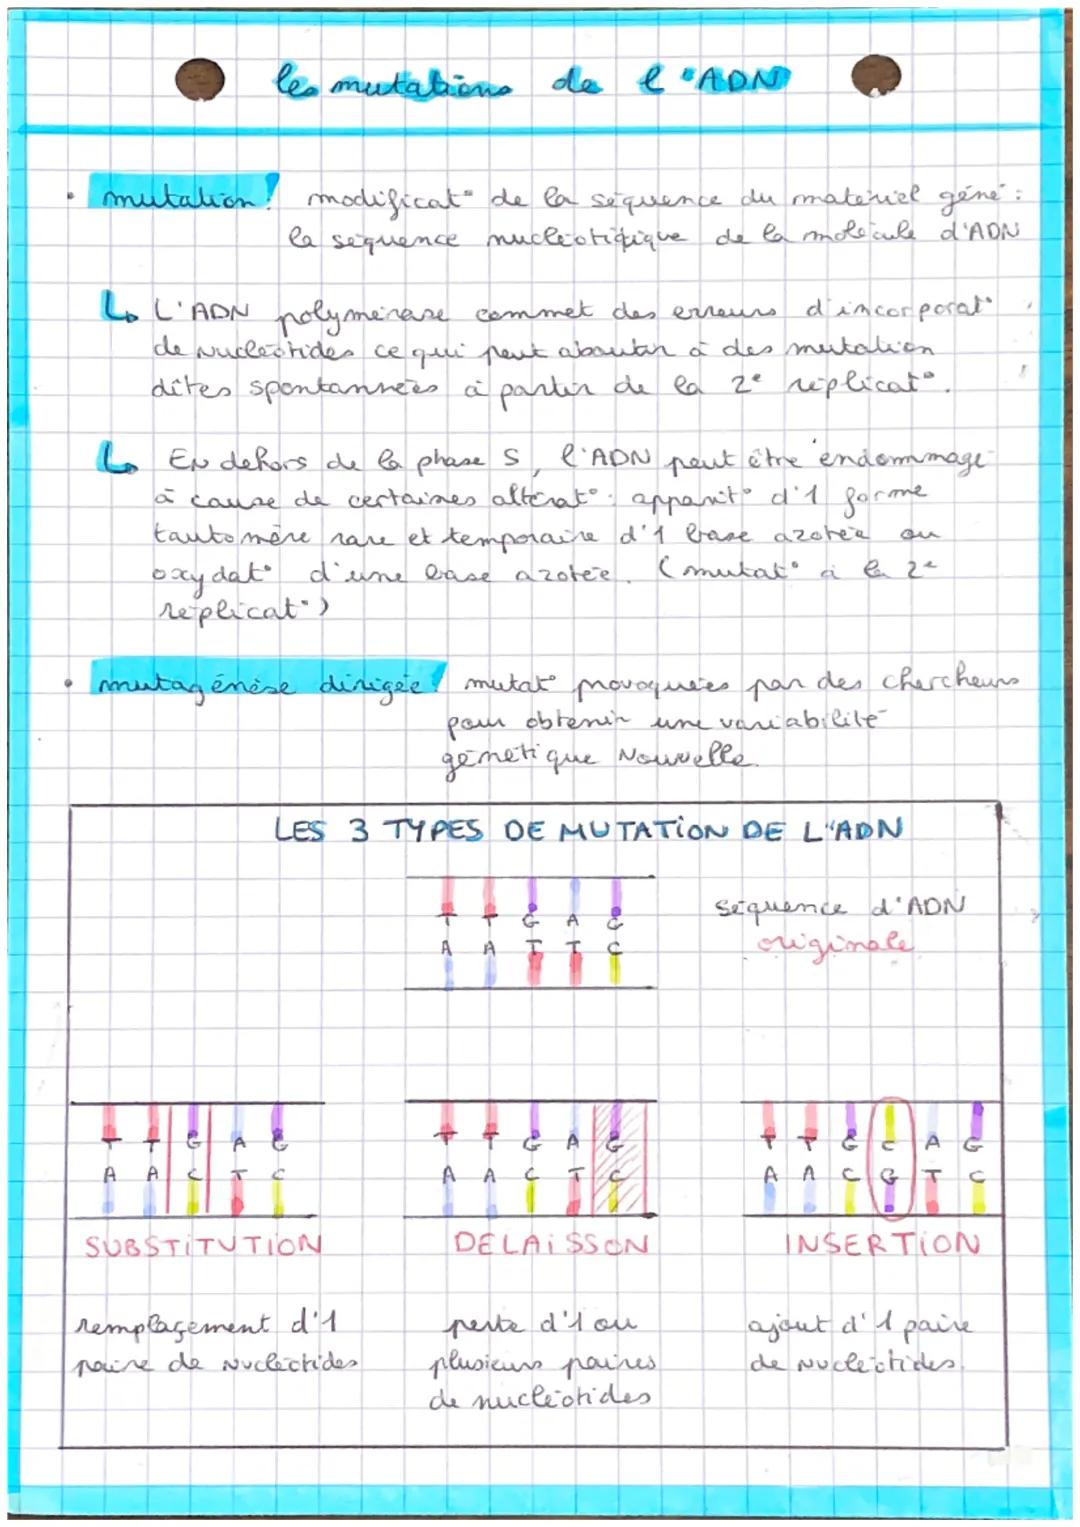 les mutations de l'ADN
• mutation! modificat° de la séquence du matériel géné :
la séquence nucléotidique de la molécule d'ADN
↳ L'ADN polymérase commet des erreurs d'incorporat°
de nucléotides ce qui peut aboutir à des mutation
dîtes spontannées à partir de la 2e réplicat°.
↳ En dehors de la phase S, l'ADN peut être endommagé
à cause de certaines altérat° : apparit° d'1 forme
tautomère rare et temporaire d'1 base azotée ou
oxydat° d'une base azotée. (mutat° à la 2e
réplicat°)
• mutagénèse dirigée! mutat° provoquées par des chercheurs
pour obtenir une variabilité
génétique Nouvelle.
LES 3 TYPES DE MUTATION DE L'ADN
T T G A G
A A T T C
séquence d'ADN
originale
T T G A G
A A C T C
SUBSTITUTION
remplaçement d'1
paire de Nucléotides
T T G A G
A A C T C
DELAISSON
perte d'1 ou
plusieurs paires
de nucléotides
T T G C A G
A A C G T C
INSERTION
ajout d'1 paire
de Nucléotides.